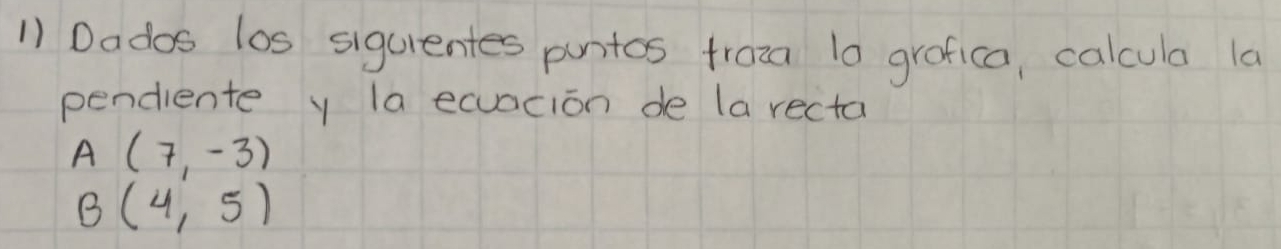 1) Dados los siguientes puntos traza la grafica, calcula la
pendiente y la ecuación de la recta
A (7, -3)
B (4, 5)